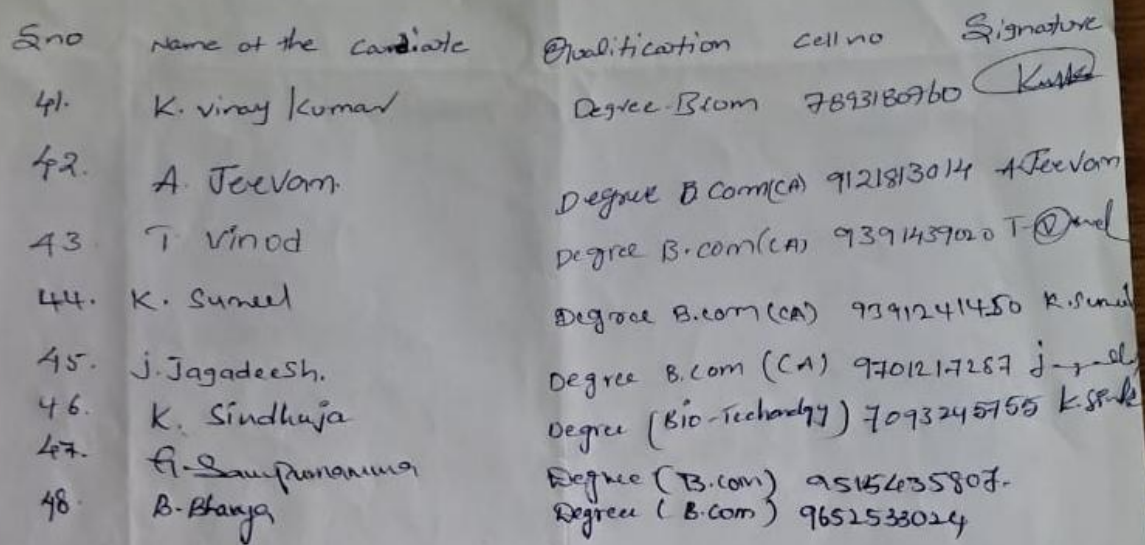 Sno Name of the Candidate Qualification Cell no Signature
41. K. vinay kumar Degree Bcom 7893180760
42. A. Jeevan. Degree B Com(CA) 9121813014 A Jeevan
43 T. Vinod Degree B.com(CA) 9391439020
44. K. Suneel Degree B.com (CA) 9391241450 K. Sunil
45. J. Jagadeesh. Degree B.Com (CA) 9701217287
46. K. Sindhuja Degree (Bio-Technology) 7093245755
47. Degree (B.com) 9515435807.
48. B. Bhavya Degree (B.Com) 9652533024